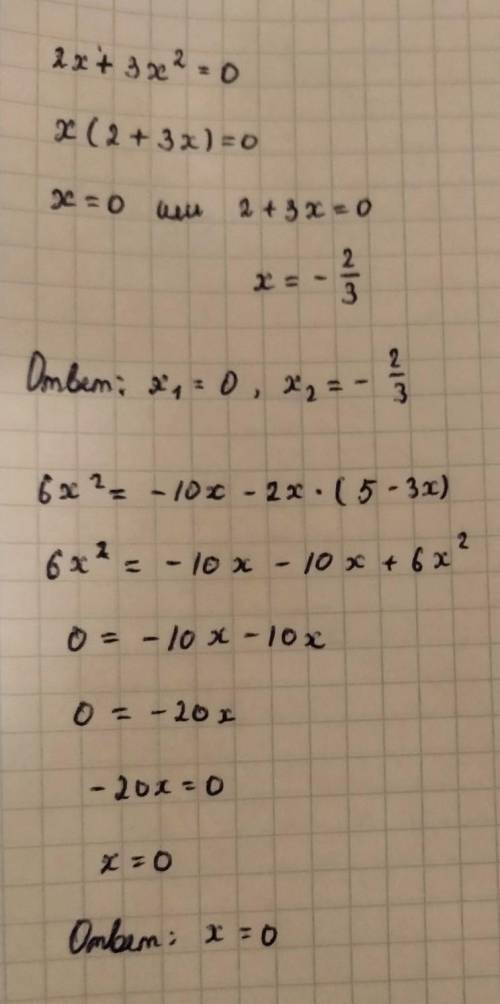 2x + 3x² = 0
x(2 + 3x) = 0
x = 0 или 2 + 3x = 0
x = - 2/3
Ответ: x₁ = 0, x₂ = - 2/3
6x² = -10x - 2x · (5 - 3x)
6x² = -10x - 10x + 6x²
0 = -10x - 10x
0 = -20x
-20x = 0
x = 0
Ответ: x = 0